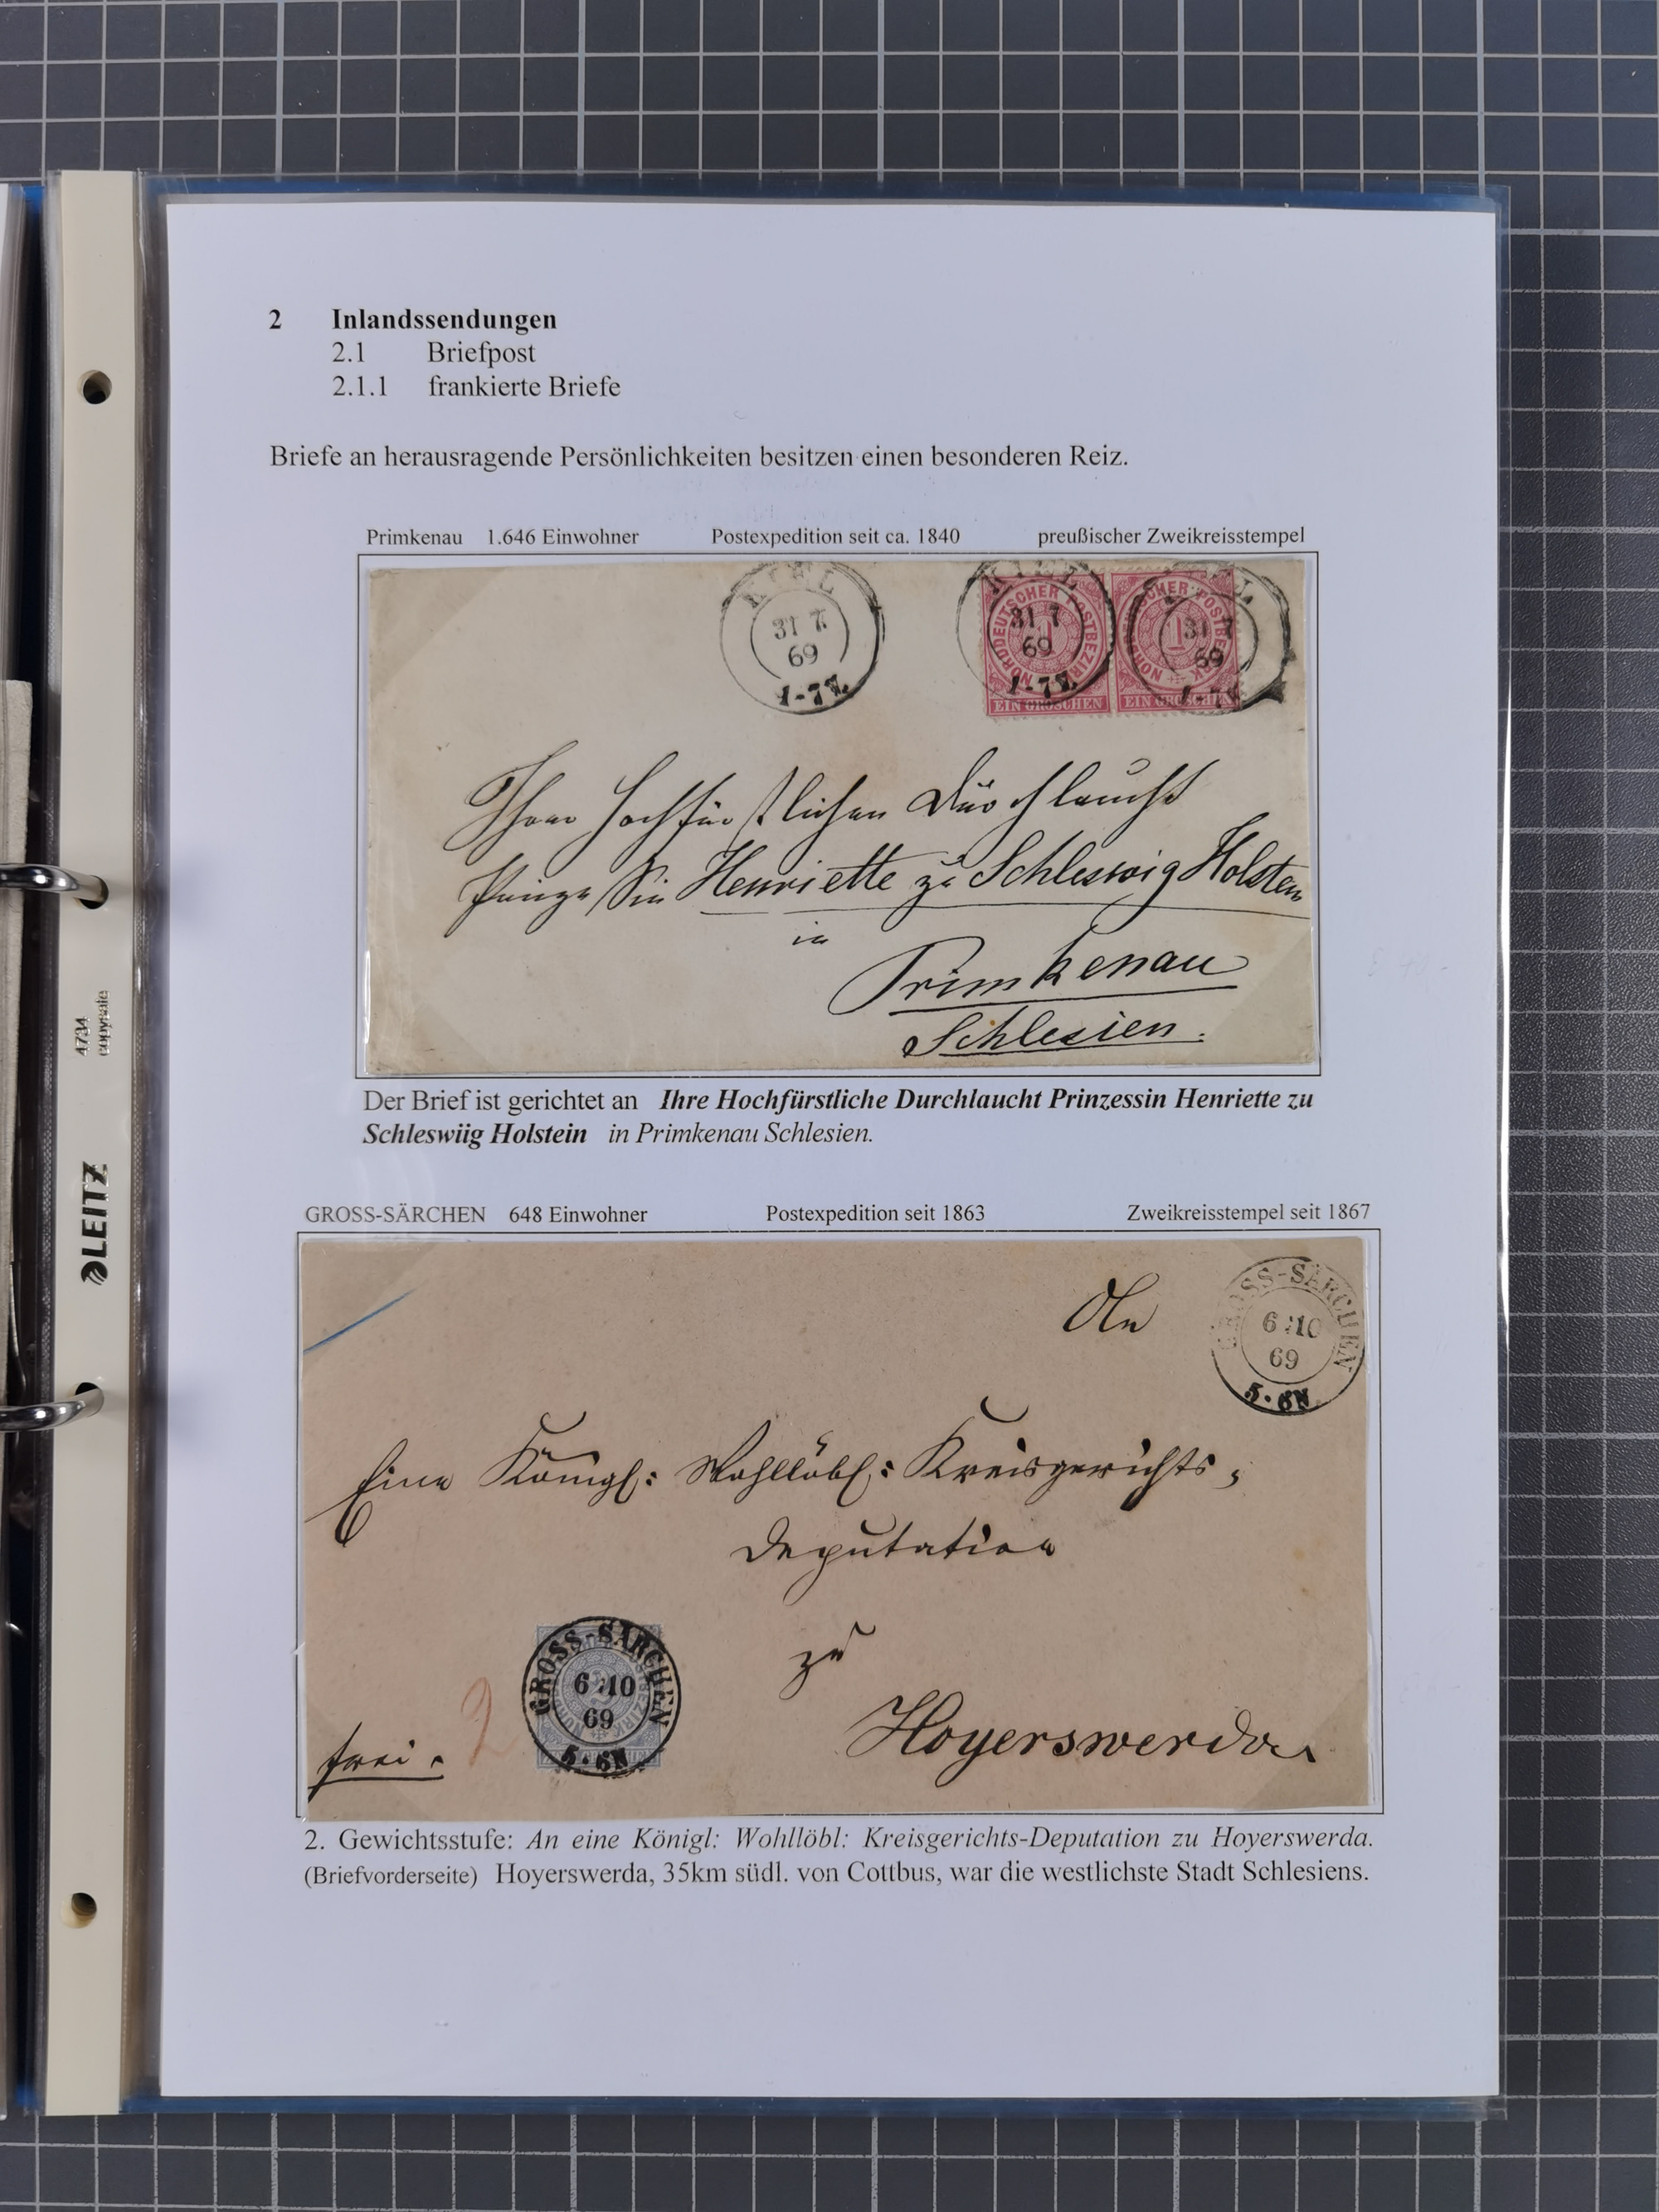 2 Inlandssendungen
2.1 Briefpost
2.1.1 frankierte Briefe
Briefe an herausragende Persönlichkeiten besitzen einen besonderen Reiz.
Primkenau 1.646 Einwohner Postexpedition seit ca. 1840 preußischer Zweikreisstempel
KIEL
31 7
69
NORDDEUTSCHER POSTBEZIRK
EIN GROSCHEN
EIN GROSCHEN
Hochfürstlichen Durchlaucht
Prinzessin Henriette zu Schleswig Holstein
in
Primkenau
Schlesien.
Der Brief ist gerichtet an Ihre Hochfürstliche Durchlaucht Prinzessin Henriette zu
Schleswiig Holstein in Primkenau Schlesien.
GROSS-SÄRCHEN 648 Einwohner Postexpedition seit 1863 Zweikreisstempel seit 1867
GROSS-SÄRCHEN
6 10
69
5-6N
An
Eine Königl: Wohllöbl: Kreisgerichts-
Deputation
zu
Hoyerswerda
GROSS-SÄRCHEN
6 10
69
5-6N
2
frei.
2. Gewichtsstufe: An eine Königl: Wohllöbl: Kreisgerichts-Deputation zu Hoyerswerda.
(Briefvorderseite) Hoyerswerda, 35km südl. von Cottbus, war die westlichste Stadt Schlesiens.
LEITZ
4734
copysafe